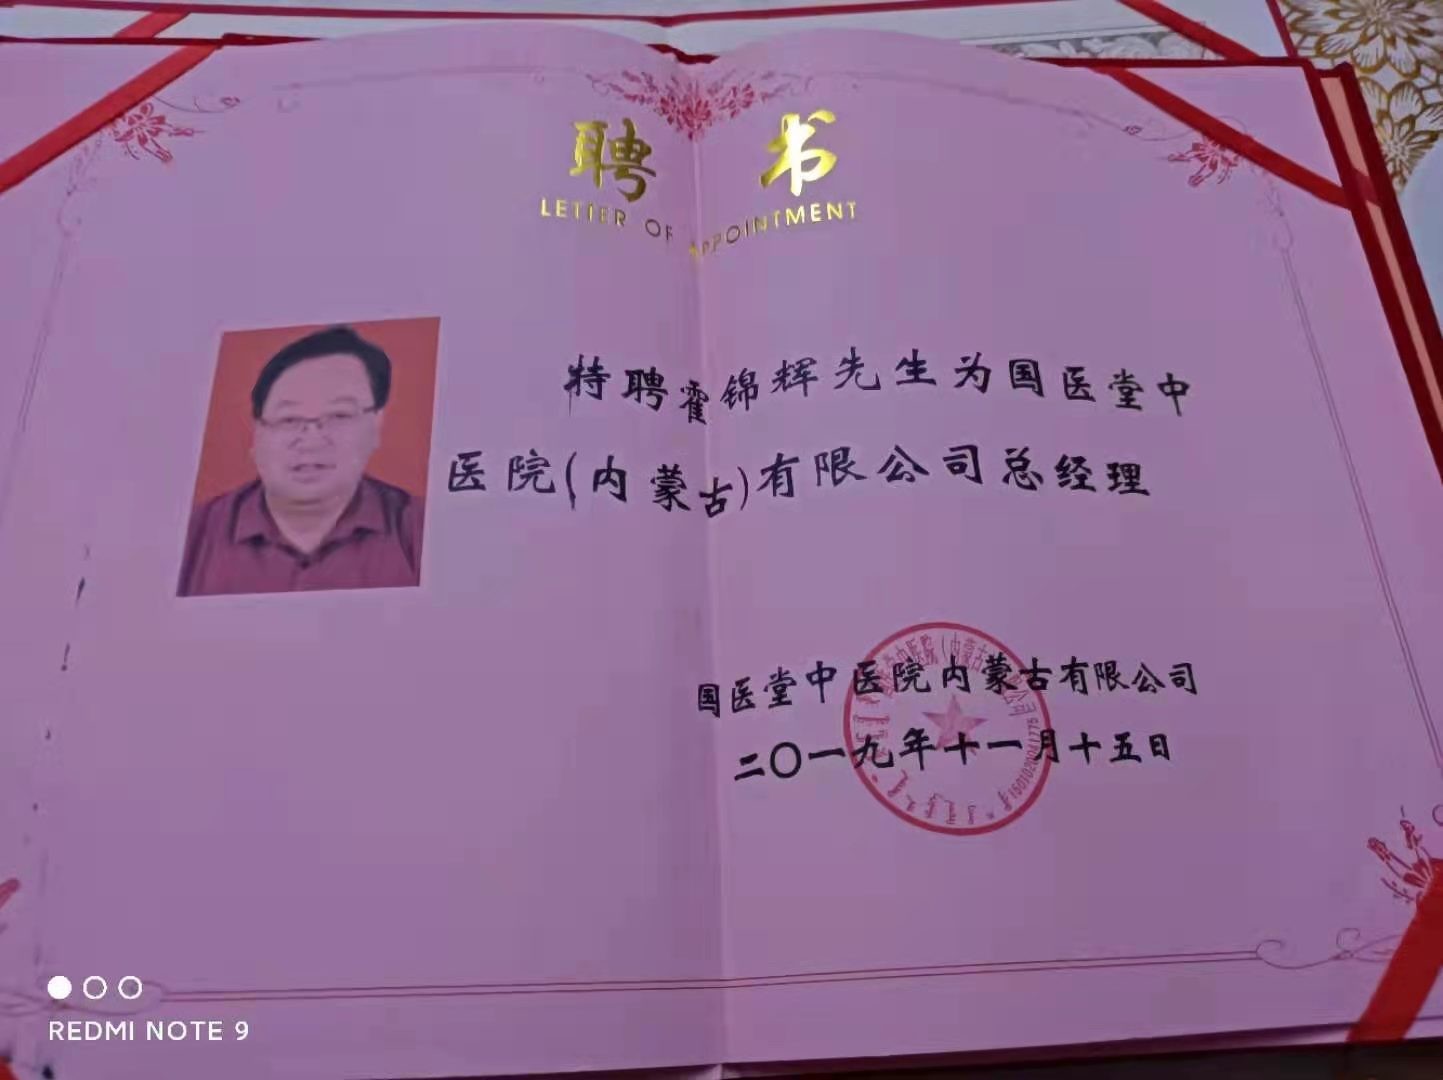 聘书
LETTER OF APPOINTMENT
特聘霍锦辉先生为国医堂中
医院(内蒙古)有限公司总经理
国医堂中医院内蒙古有限公司
二〇一九年十一月十五日
REDMI NOTE 9